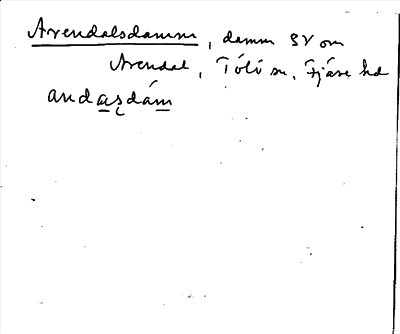 Arendalsdamm, damm SV om
Arendal, Tölö sn, Fjäre hd
andaşdám